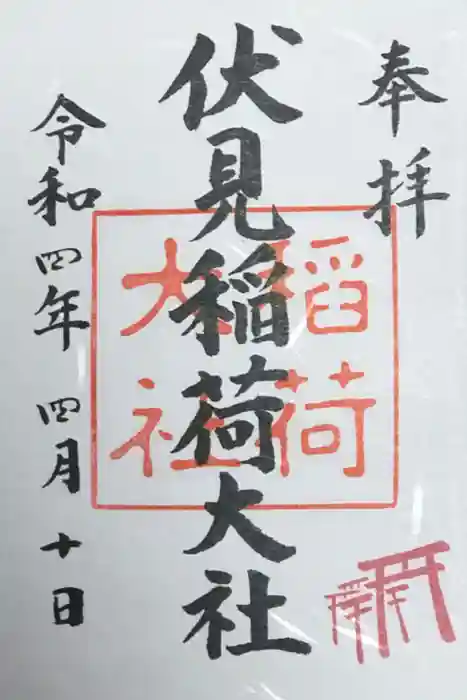 奉拝
伏見稲荷大社
稲荷
大社
令和四年 四月 十日